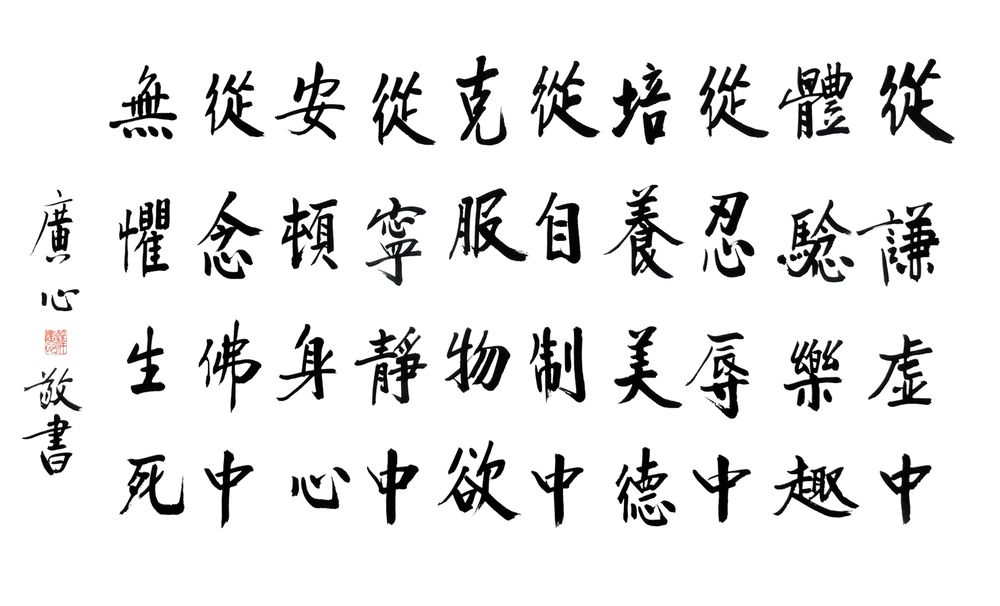 從謙虛中
體驗樂趣
從忍辱中
培養美德
從自制中
克服物欲
從寧靜中
安頓身心
從念佛中
無懼生死
廣心敬書